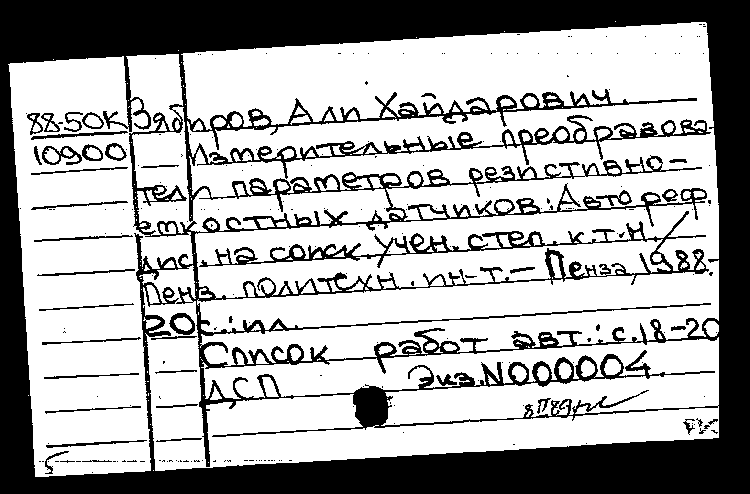 88-50К Зябиров, Али Хайдарович.
10900 Измерительные преобразова-
тели параметров резистивно-
емкостных датчиков: Автореф.
дис. на соиск. учен. степ. к.т.н. /
Пенз. политехн. ин-т. – Пенза, 1988.-
20с.: ил.
Список работ авт.: с.18-20
ДСП. Экз. N000004.
5